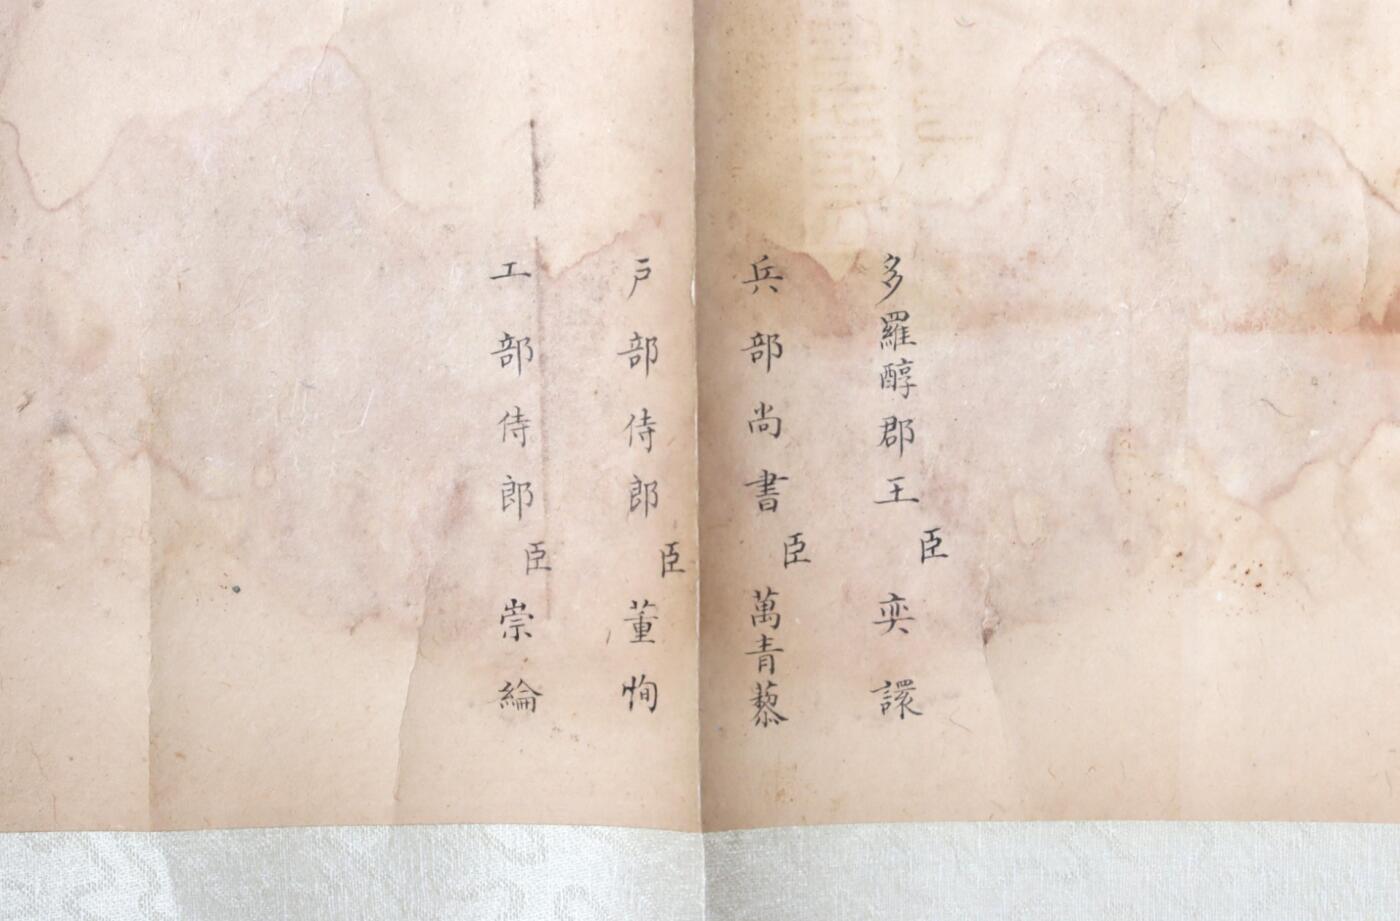 多羅醇郡王臣奕譞
兵部尚書臣萬青藜
戶部侍郎臣董恂
工部侍郎臣崇綸